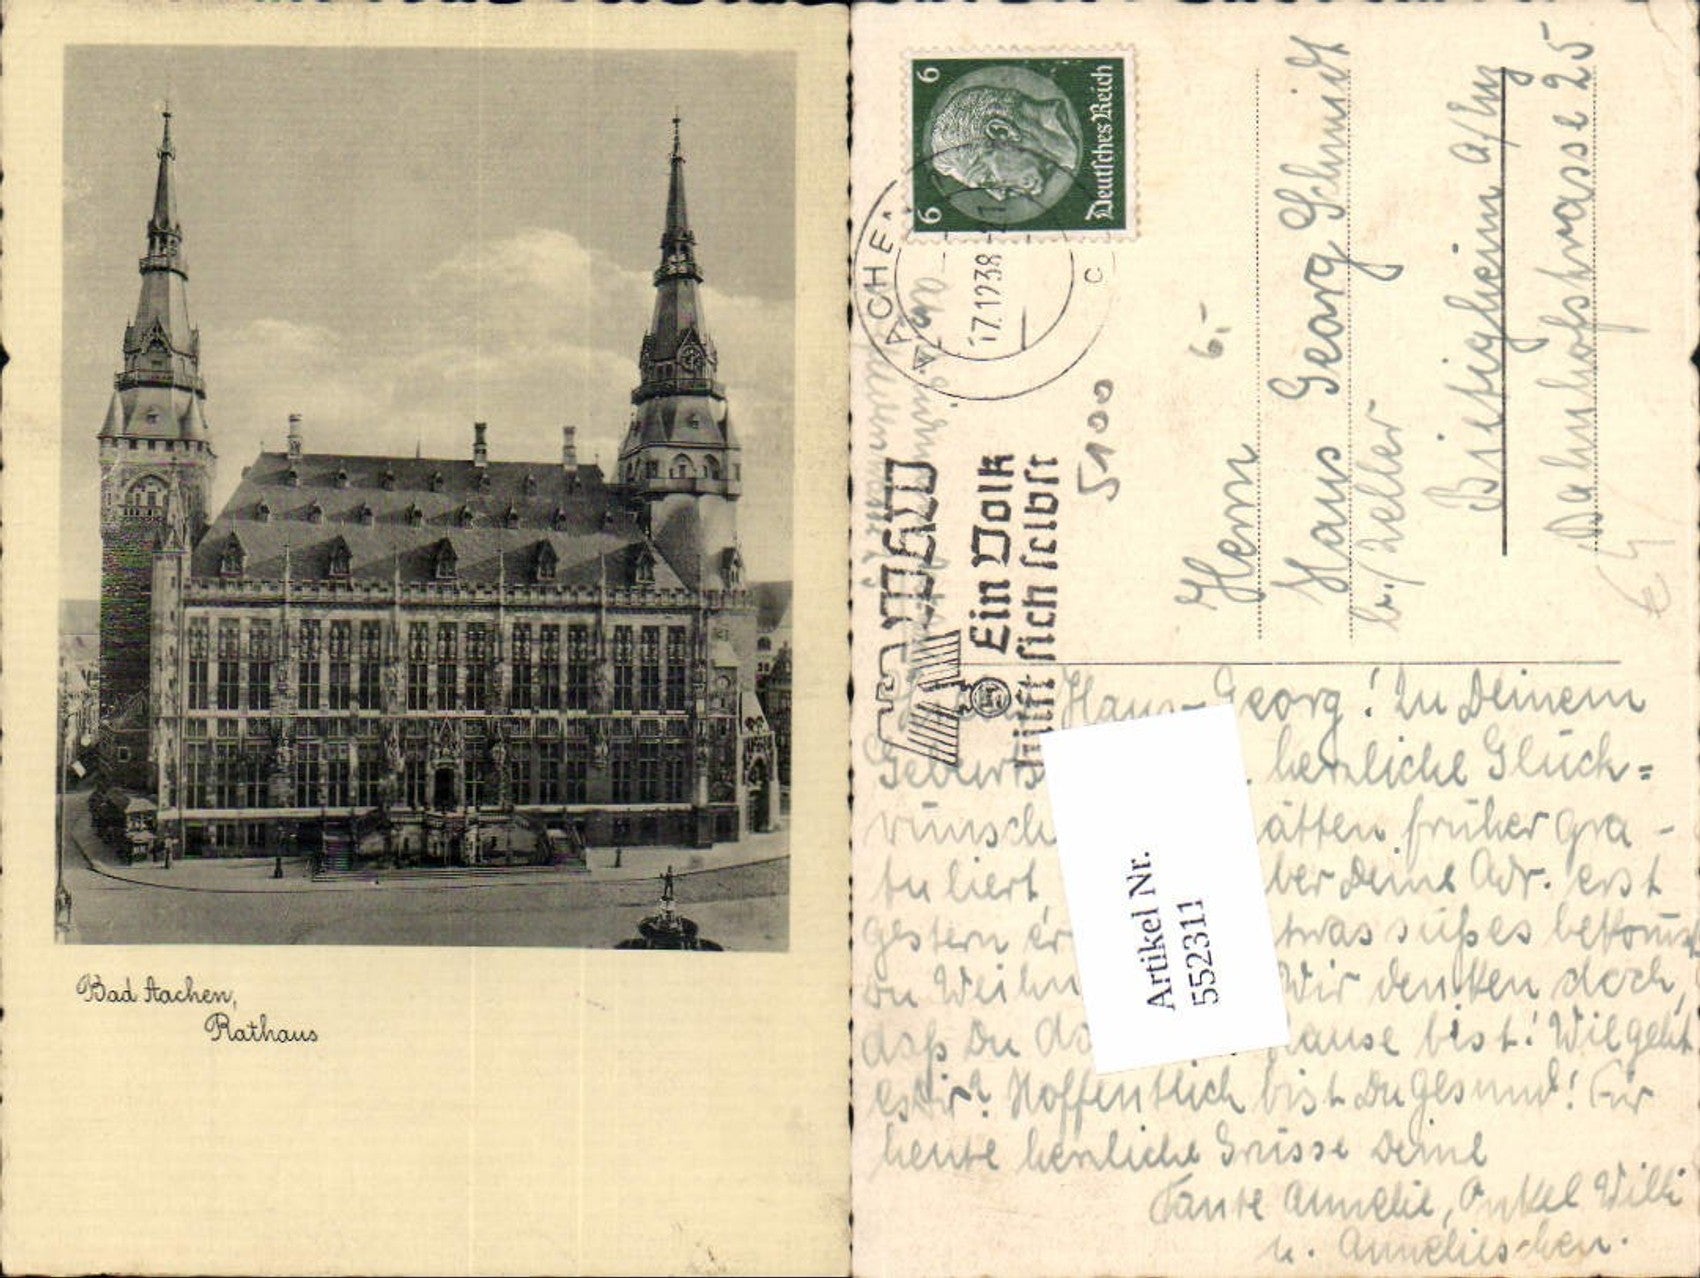 Bad Aachen,
Rathaus
6 6
Deutsches Reich
AACHEN
17.12.38
c
Ein Volk
hilft sich selbst
5100
6.-
Herrn
Hans Georg Schmidt
b./Zeller
Bietigheim a/Enz
Bahnhofstrasse 25
€ 4
Hans-Georg! Zu Deinem
Geburts herzliche Glück=
wünsch ätten früher gra-
tuliert ber Deine Adr. erst
gestern er twas süßes bekomm
zu Weihn Wir denken doch,
daß Du da Hause bist! Wie geht
es Dir? Hoffentlich bist Du gesund! Für
heute herzliche Grüsse Deine
Tante Annelie, Onkel Willi
u. Annelieschen.
Artikel Nr.
552311